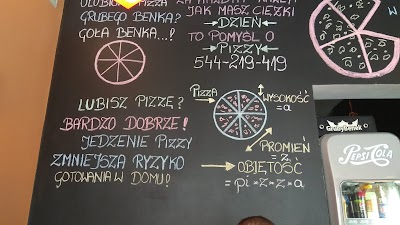 ULUBIONA PIZZA
GRUBEGO BENKA?
GOŁA BENKA...!
JAK MASZ CIĘŻKI
DZIEŃ
TO POMYŚL O
PIZZY
544-219-419
LUBISZ PIZZĘ?
BARDZO DOBRZE!
JEDZENIE PIZZY
ZMNIEJSZA RYZYKO
GOTOWANIA W DOMU?
PIZZA
WYSOKOŚĆ
= a
PROMIEŃ
= z
OBJĘTOŚĆ
= pi × z × z × a
GrubyBenek
PEPSI COLA